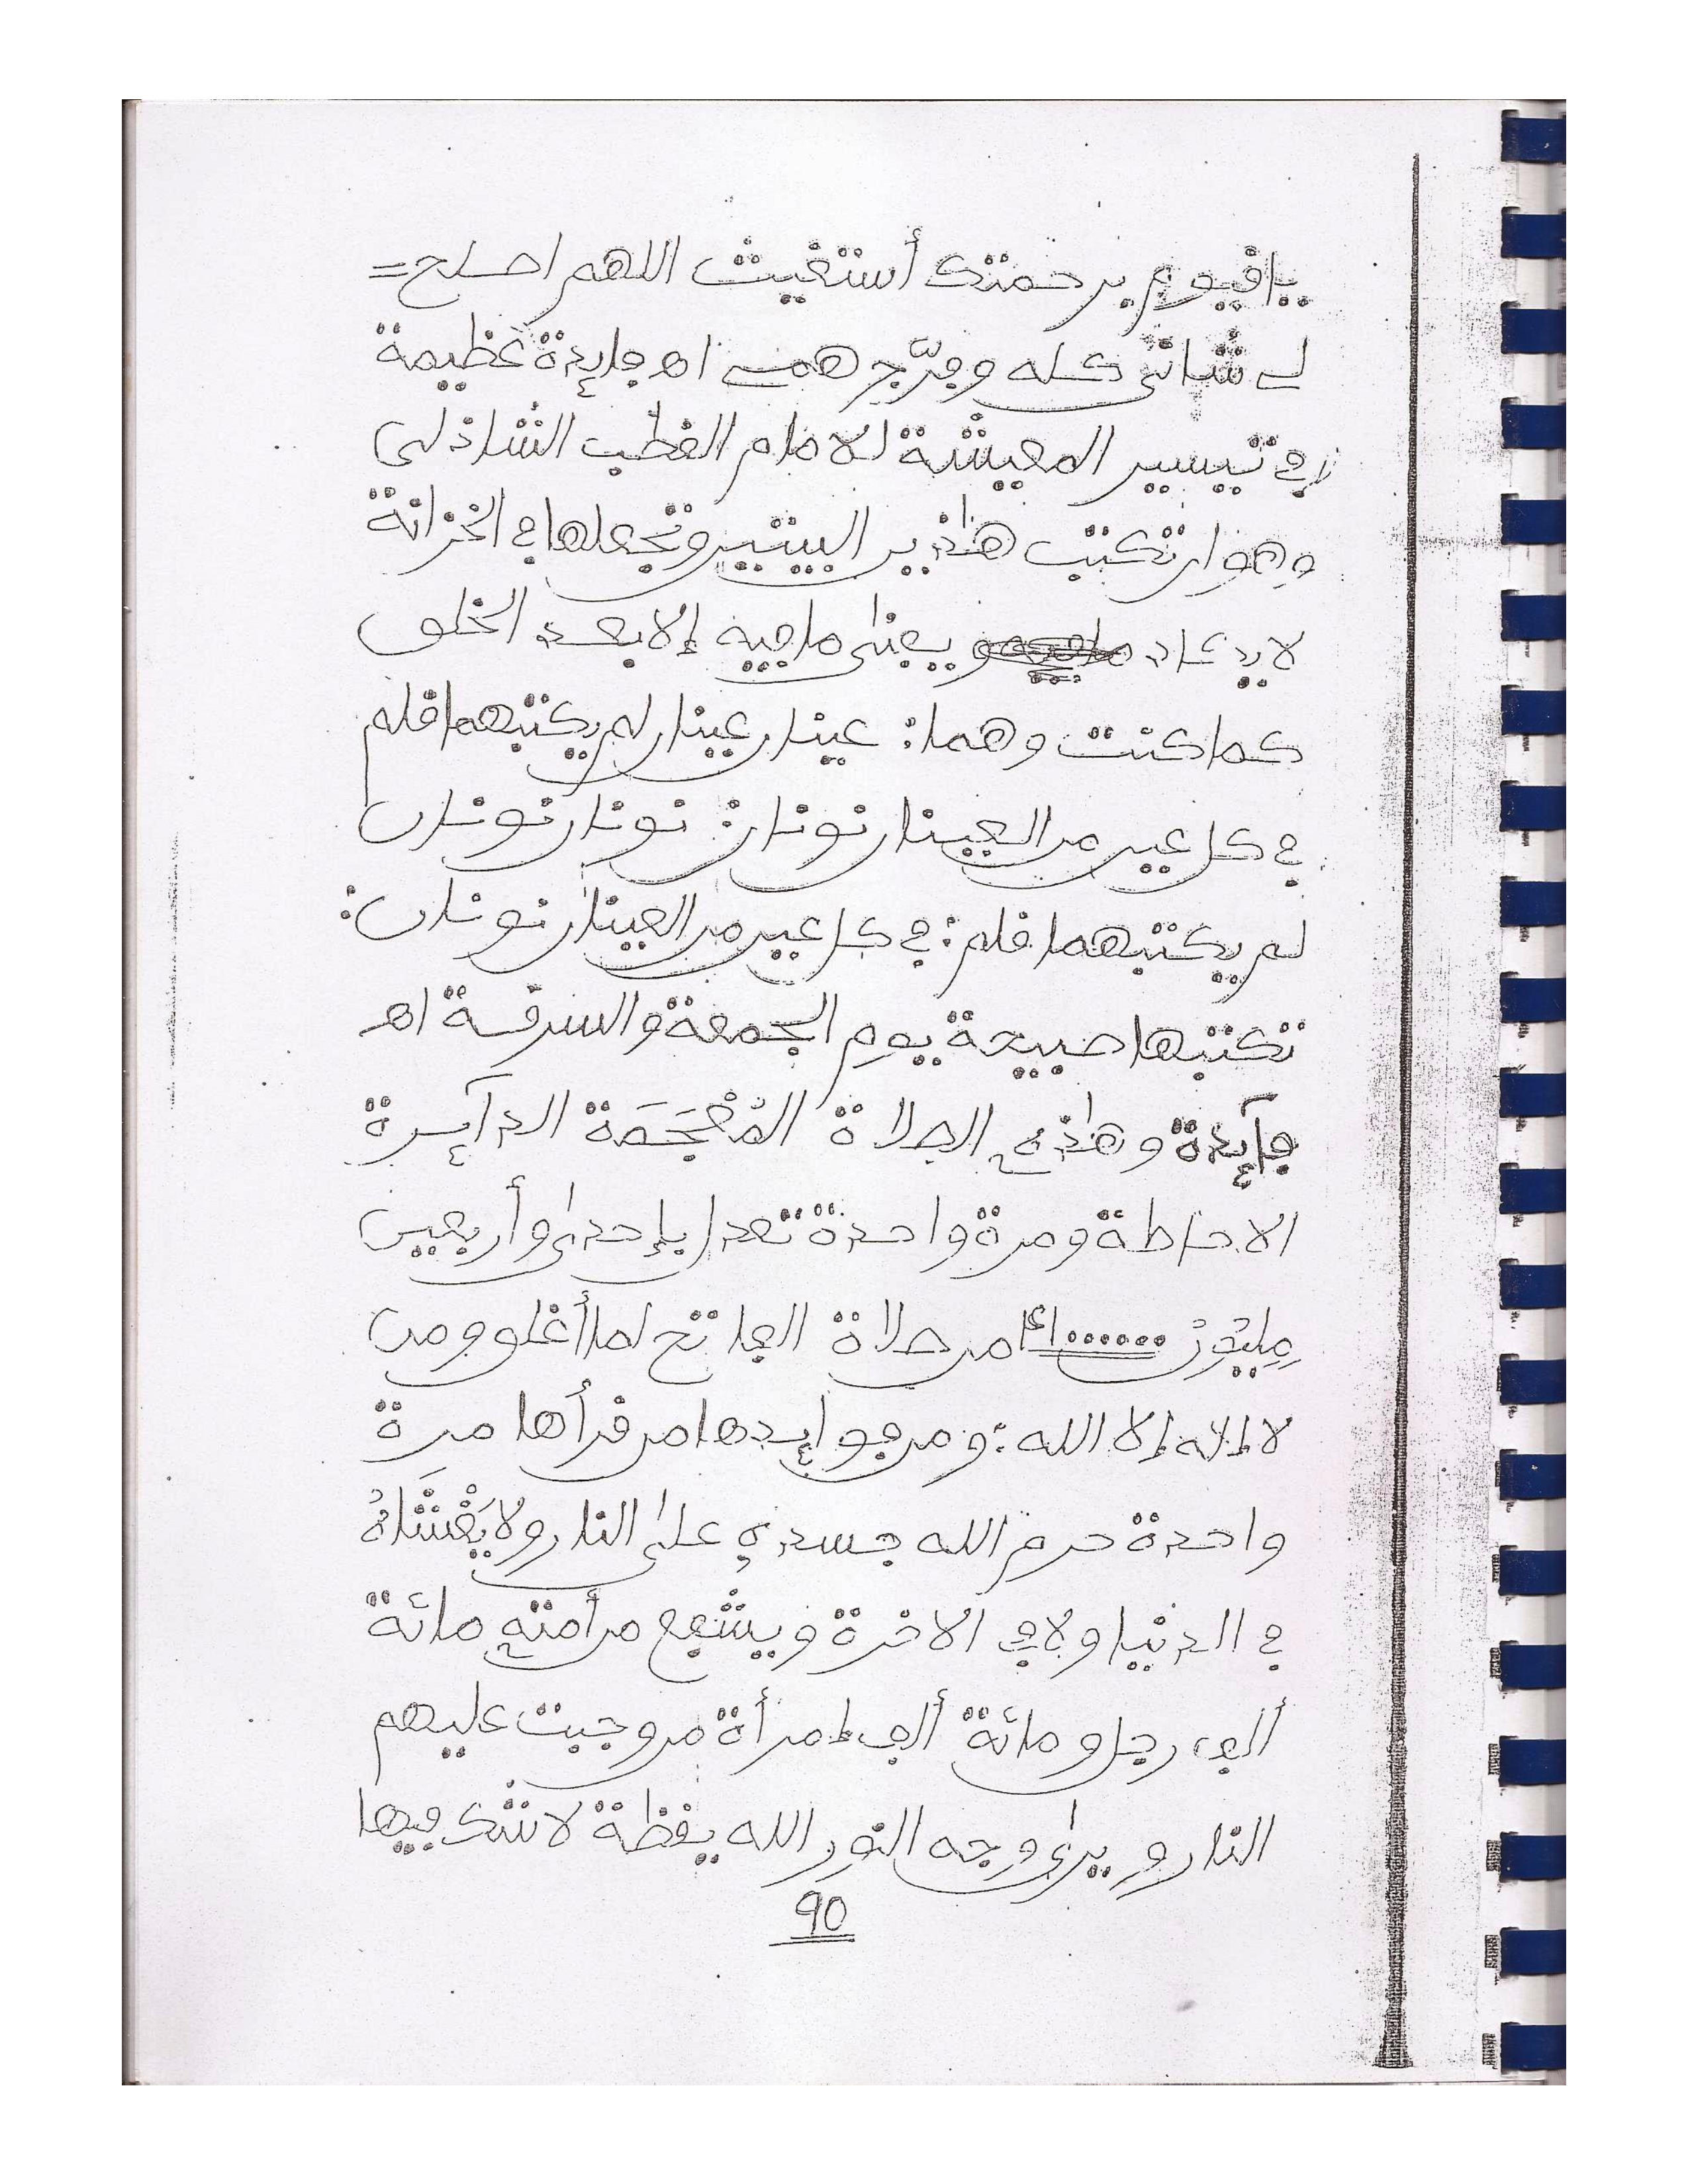 ياقيوم برحمتك أستغيث اللهم اصلح=
لي شاني كله وفرّج همي اهـ فايدة عظيمة
في تيسير المعيشة للامام القطب الشاذلى
وهو ان تكتب هاذين البيتين وتجعلها في الخزانة
لا يكاد يفنى ما فيه إلا بعد الخلق
كما كنت وهما: عينان عينان لم يكتبهما قلم
في كل عين من العينان نونان: نونان نونان
لم يكتبهما قلم: في كل عين من العينان نونان:
تكتبها صبيحة يوم الجمعة والسرقة اهـ
فآيدة وهاذه الصلاة المُعْجَمَة الدآيرة
الاحاطة ومرة واحدة تعدل بإحدى وأربعين
مليون ٤١٠٠٠٠٠٠ من صلاة الفاتح لما أغلق ومن
لا إلاه إلا الله: ومن فوايدها من قرأها مرة
واحدة حرم الله جسده على النار ولا يَغْشَاهُ
في الدنيا ولا في الاخرة ويشفع من أمته مائة
ألف رجل ومائة ألف إمرأة من وجبت عليهم
النار ويرى وجه النور الله يقظة لا شك فيها
90